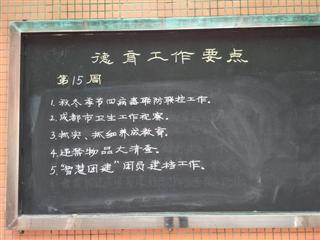 德育工作要点
第15周
1.秋冬季节四病毒联防联控工作。
2.成都市卫生工作视察。
3.抓实、抓细养成教育。
4.违禁物品大清查。
5.“智慧团建”团员建档工作。